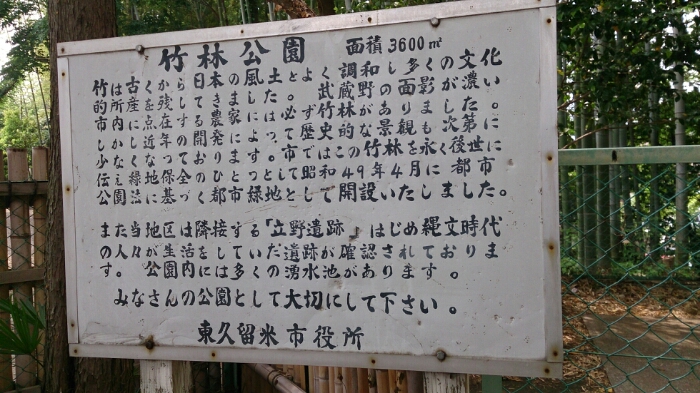 竹林公園 面積 3600㎡
竹は古くから日本の風土とよく調和し多くの文化
的所産を残してきました。武蔵野の面影が濃い
市内に点在する農家には必ず竹林がありました。
しかし近年の開発によって歴史的な景観も次第に
少なくなっております。市ではこの竹林を永く後世に
伝え緑地保全のひとつとして昭和49年4月に都市
公園法に基づく都市緑地として開設いたしました。
また当地区は隣接する「立野遺跡」はじめ縄文時代
の人々が生活をしていた遺跡が確認されておりま
す。公園内には多くの湧水池があります。
みなさんの公園として大切にして下さい。
東久留米市役所